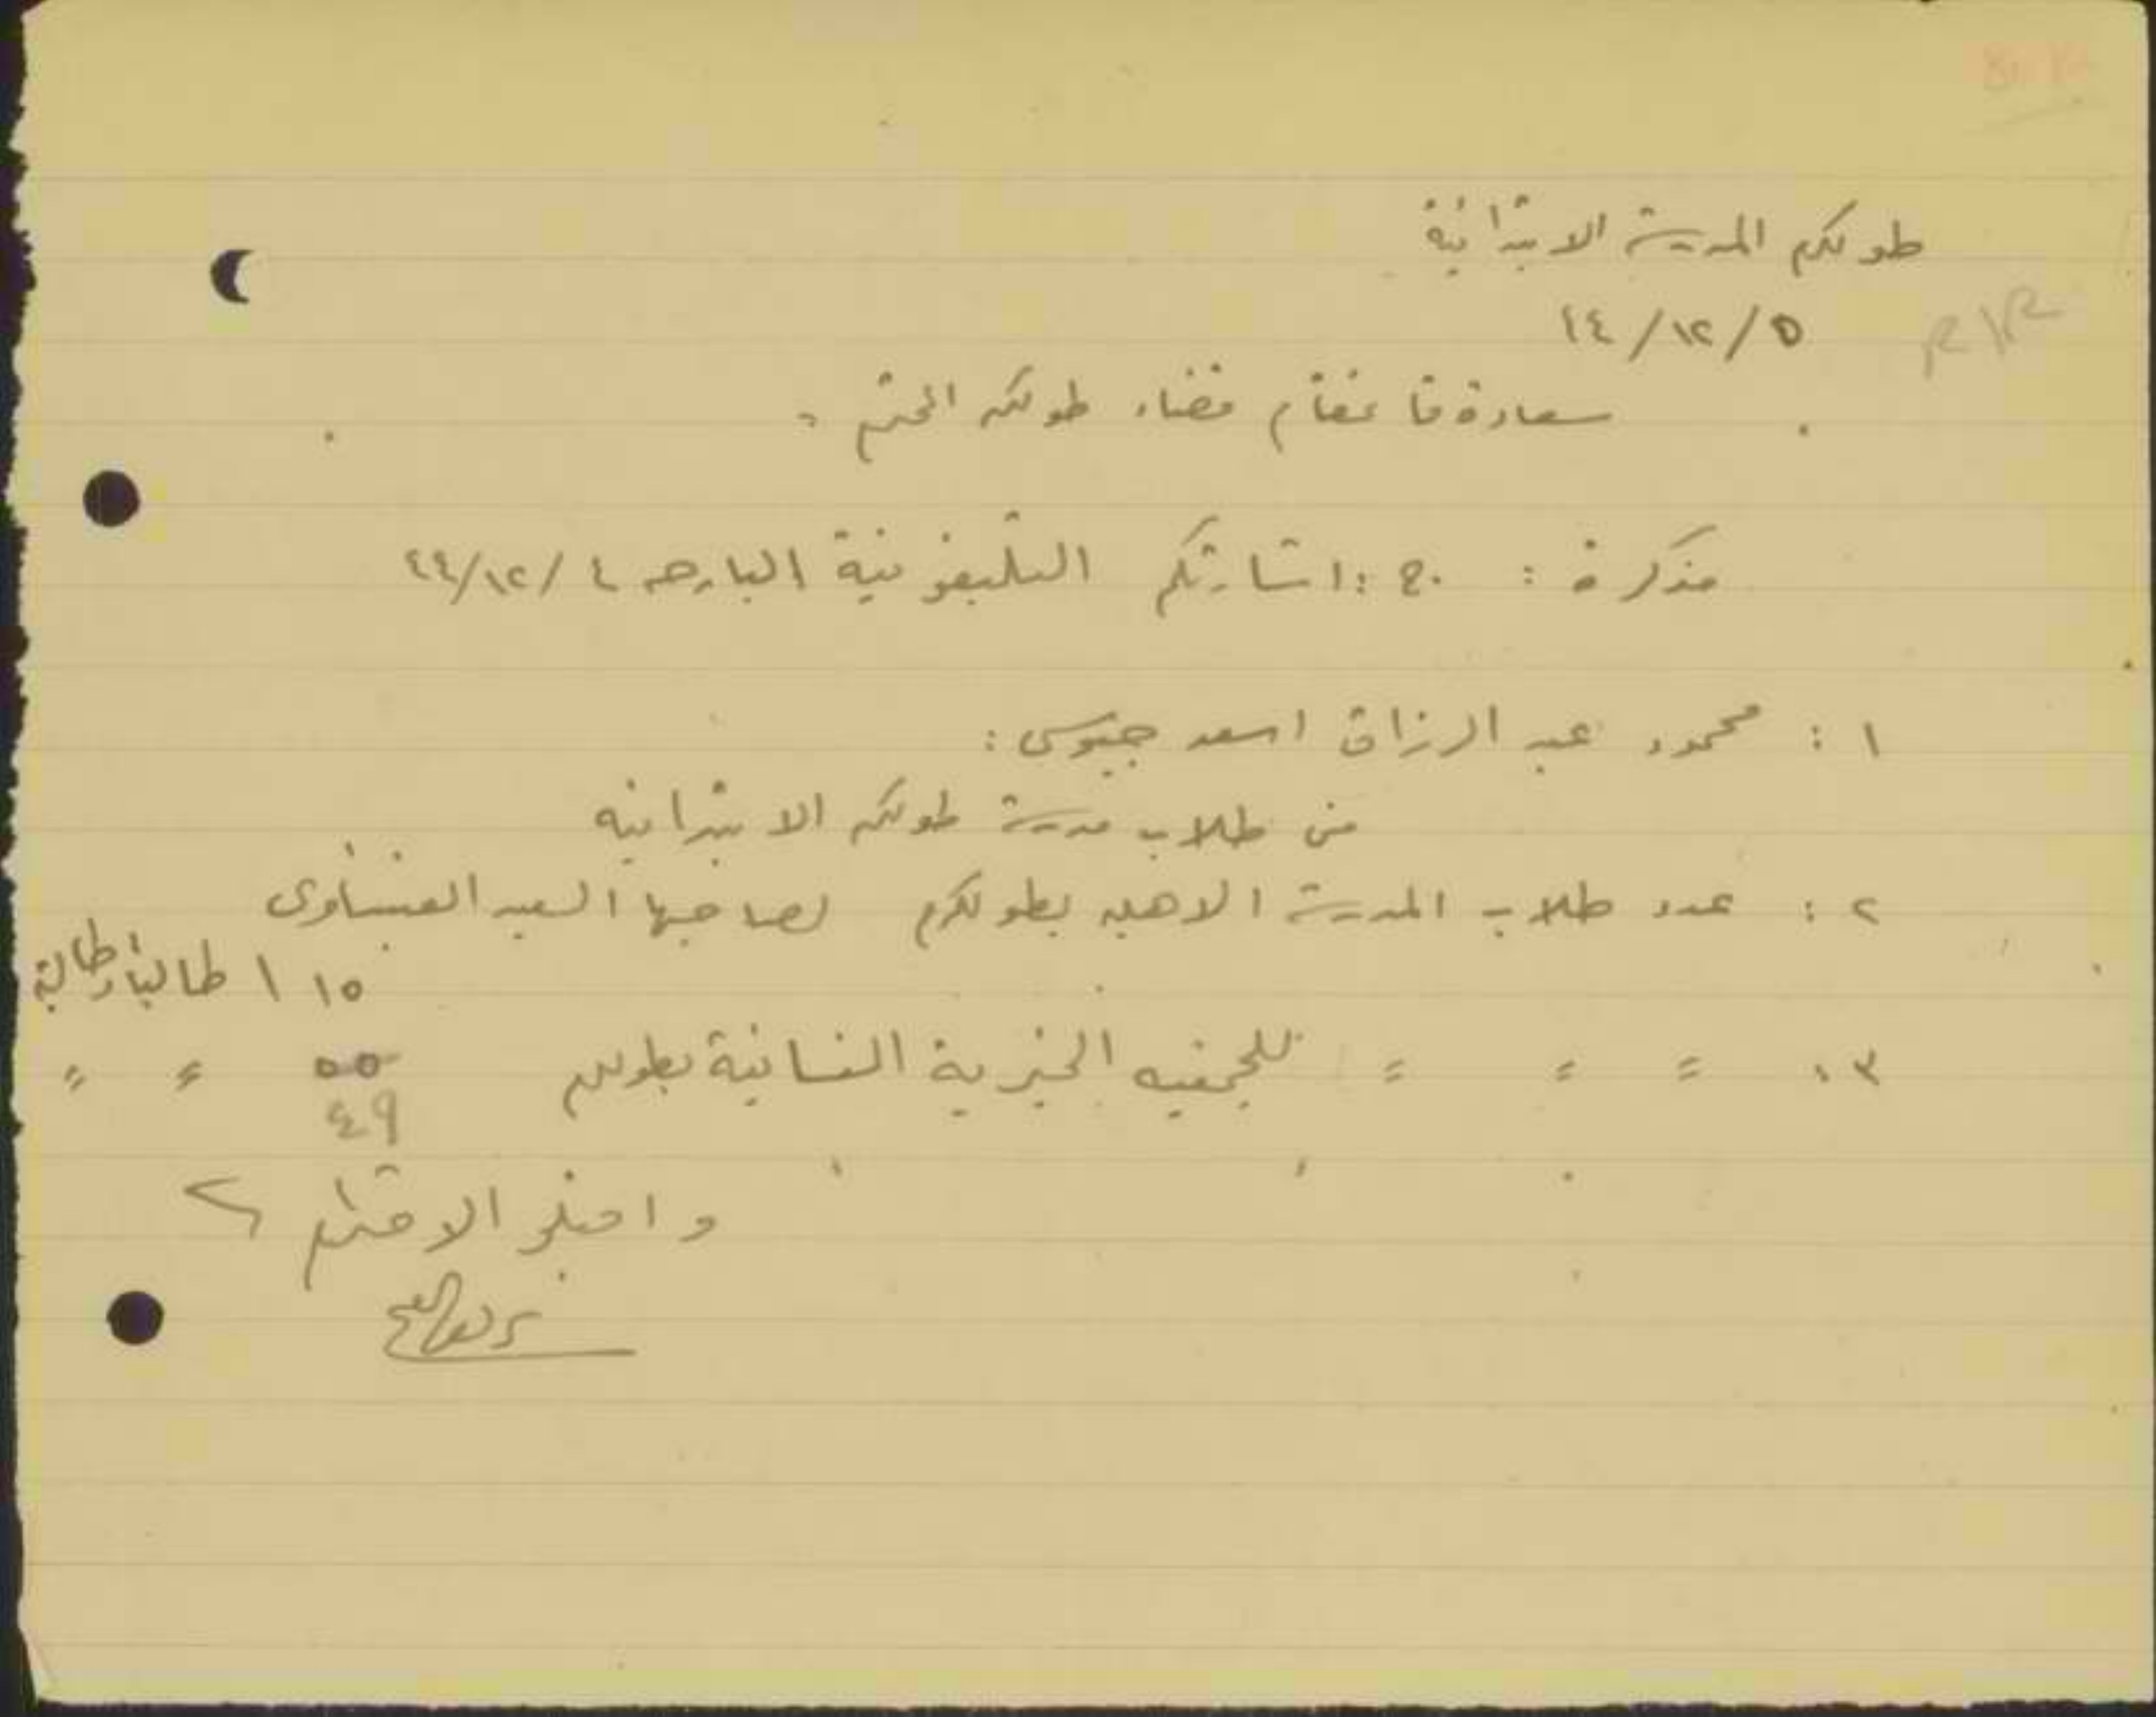 طولكرم المدرسة الابتدائية
٤٤/١٢/٥
سعادة قائمقام قضاء طولكرم المحترم
مذكرة : ج : اشارتكم التليفونية البارحه ٤٤/١٢/٤
١ : محمود عبد الرزاق اسعد جيوسى :
من طلاب مدرسة طولكرم الابتدائيه
٢ : عدد طلاب المدرسة الاهليه بطولكرم لصاحبها السيد
١١٥ طالبا وطالبة
٣ : = = = للجمعيه الخيرية النسائية بطولكرم ٥٥ = =
٤٩
واقبلوا الاحترام